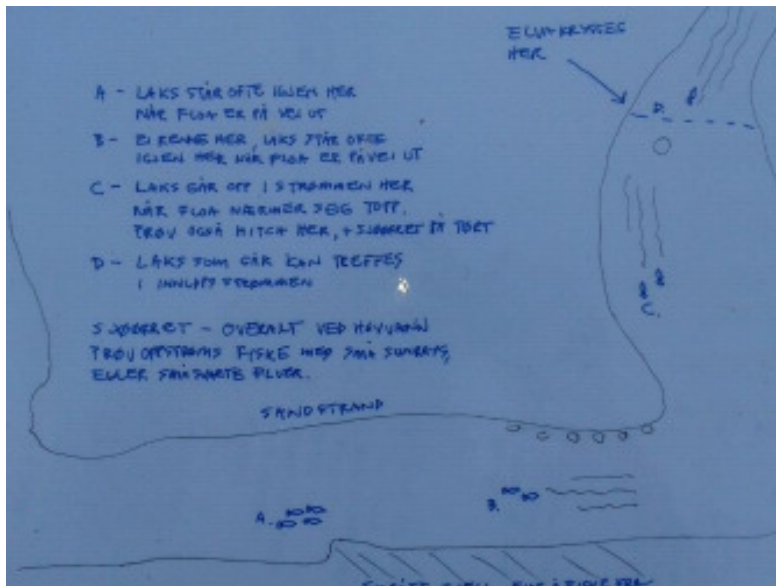 ELVA KRYSSES
HER
A - LAKS STÅR OFTE IGJEN HER
NÅR FLOA ER PÅ VEI UT
B - EI RENNE HER, LAKS STÅR OFTE
IGJEN HER NÅR FLOA ER PÅ VEI UT
C - LAKS GÅR OPP I STRØMMEN HER
NÅR FLOA NÆRMER SEG TOPP.
PRØV OGSÅ HITCH HER, + SJØØRRET PÅ TØRT
D - LAKS SOM GÅR KAN TREFFES
I INNLØPS STRØMMEN
SJØØRRET - OVERALT VED HØYVANN
PRØV OPPSTRØMS FISKE MED SMÅ
ELLER SMÅ SVARTE FLUER.
D.
C.
SANDSTRAND
A.
B.